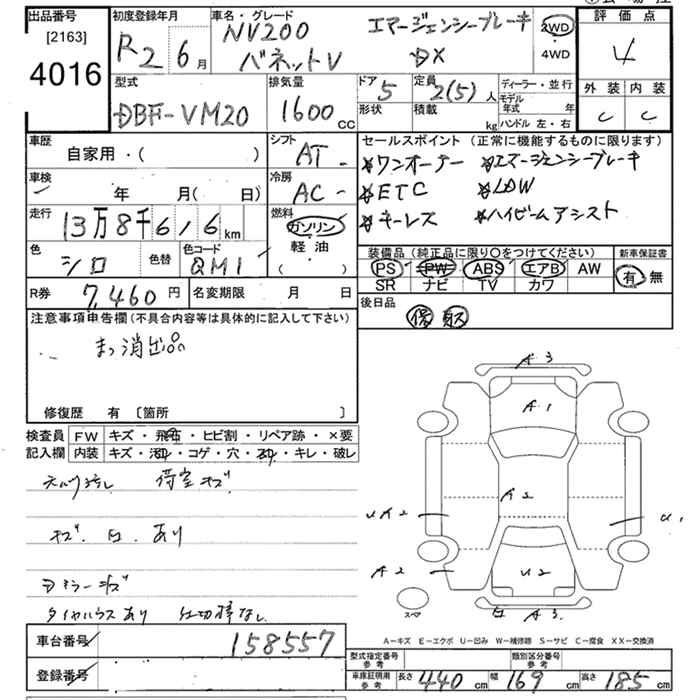 出品番号
[2163]
4016
初度登録年月
R2 6 月
車名・グレード
NV200 エマージェンシーブレーキ
バネットV DX
2WD
・
4WD
評価点
4
外装 内装
C C
型式
DBF-VM20
排気量
1600 cc
ドア 5
形状
定員 2(5) 人
積載 kg
ディーラー・並行
モデル年式 年
ハンドル 左・右
車歴
自家用・( )
シフト
AT
セールスポイント (正常に機能するものに限ります)
*ワンオーナー *エマージェンシーブレーキ
*ETC *LDW
*キーレス *ハイビームアシスト
車検
年 月( 日)
冷房
AC
走行
13万8千616 km
燃料
ガソリン
軽・油
( )
色
シロ
色替
色コード
QM1
装備品 (純正品に限り○をつけてください)
PS PW ABS エアB AW
SR ナビ TV カワ
新車保証書
有 無
R券 7,460 円
名変期限 月 日
後日品
保 取
注意事項申告欄 (不具合内容等は具体的に記入して下さい)
修復歴 有 〔箇所 〕
検査員 FW キズ・飛石・ヒビ割・リペア跡・×要
記入欄 内装 キズ・汚れ・コゲ・穴・スレ・キレ・破レ
荷室キズ
キズ. 凹 あり
ドアミラーキズ
タイヤハウスあり 仕切棒なし
A3
A1
A2
UA2
U1
A2
U2
スペア
凹 A3
A－キズ E－エクボ U－凹み W－補修跡 S－サビ C－腐食 XX－交換済
車台番号 158557
登録番号
型式指定番号 参考
類別区分番号 参考
車庫証明用 参考
長さ 440 cm 幅 169 cm 高さ 185 cm